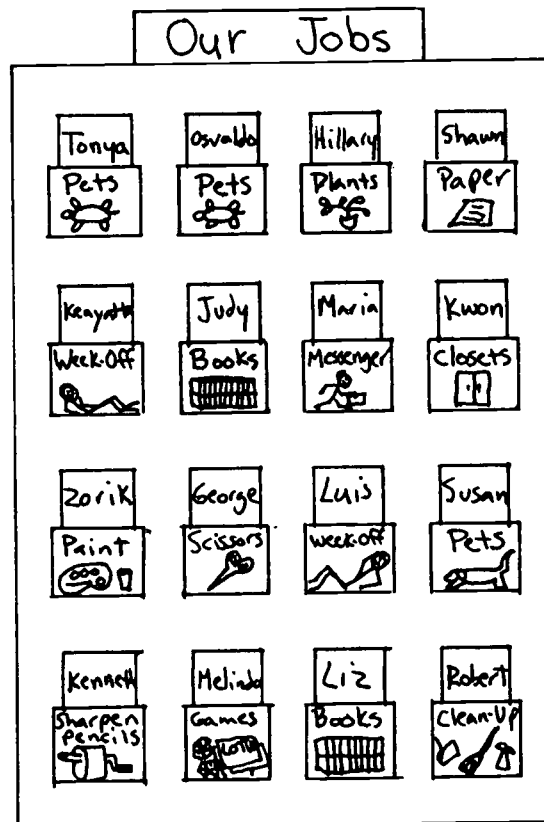 Our Jobs
Tonya
Pets
Osvaldo
Pets
Hillary
Plants
Shawn
Paper
Week-Off
Judy
Books
Maria
Messenger
Kwon
Closets
Zorik
Paint
George
Scissors
Luis
Week-Off
Susan
Pets
Kenneth
Sharpen
Pencils
Melinda
Games
LOTTO
Liz
Books
Robert
Clean-Up